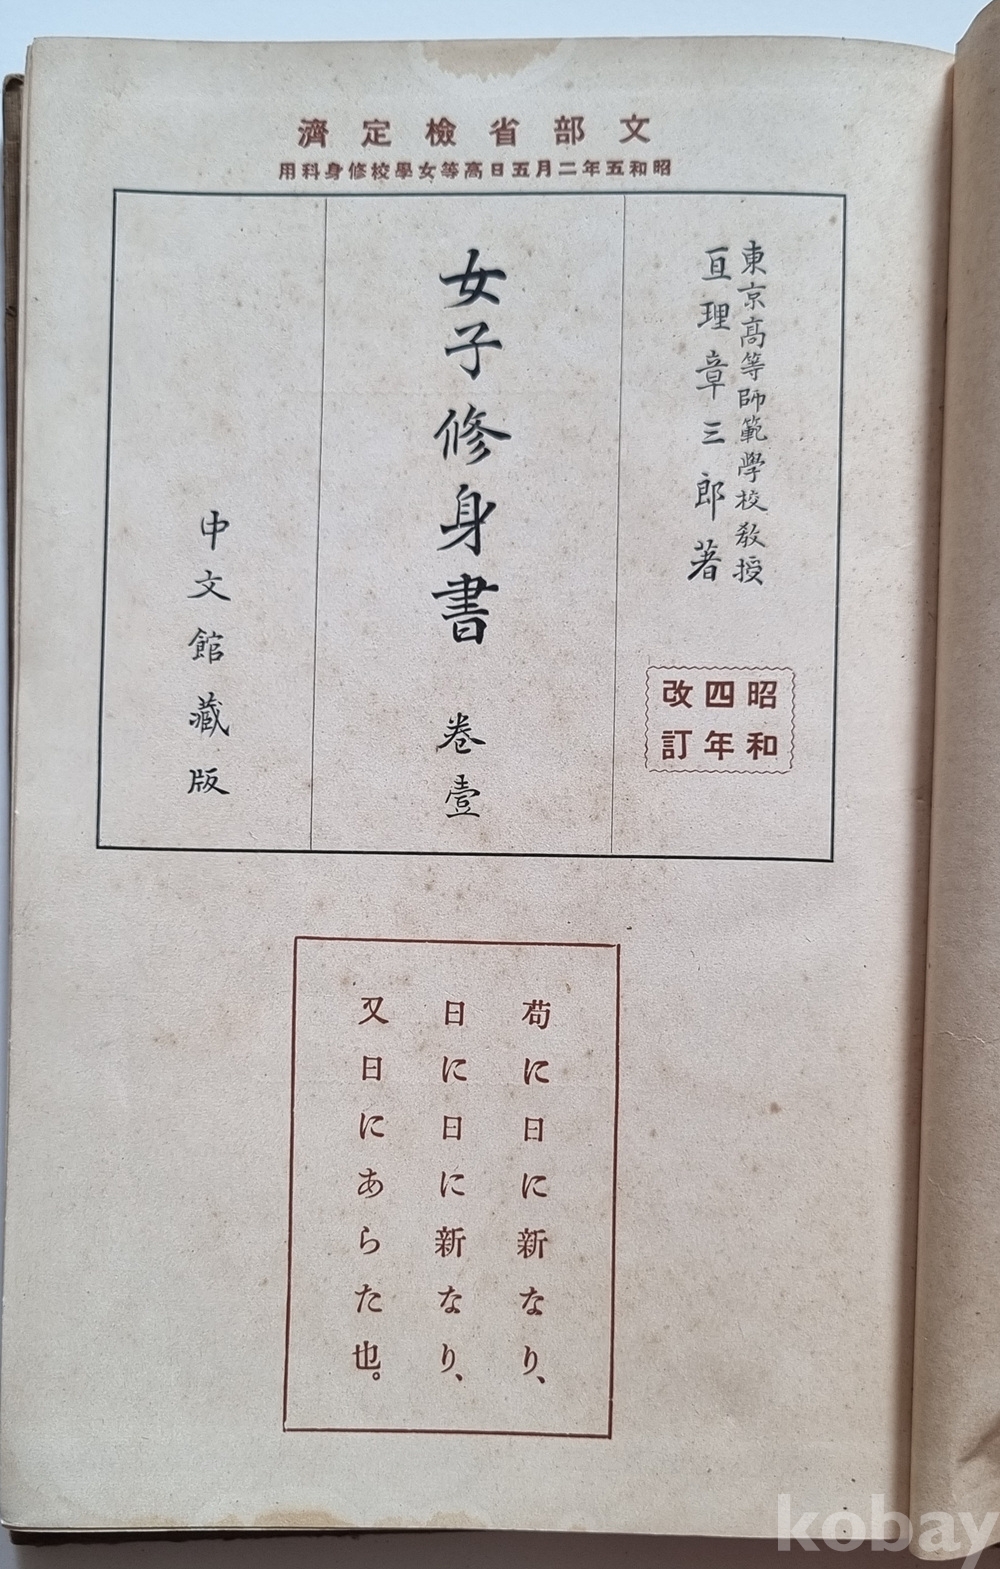 文部省檢定濟
昭和五年二月五日高等女學校修身科用
東京高等師範學校敎授
亘理章三郎著
昭和
四年
改訂
女子修身書 卷壹
中文館藏版
苟に日に新なり、
日に日に新なり、
又日にあらた也。
kobay